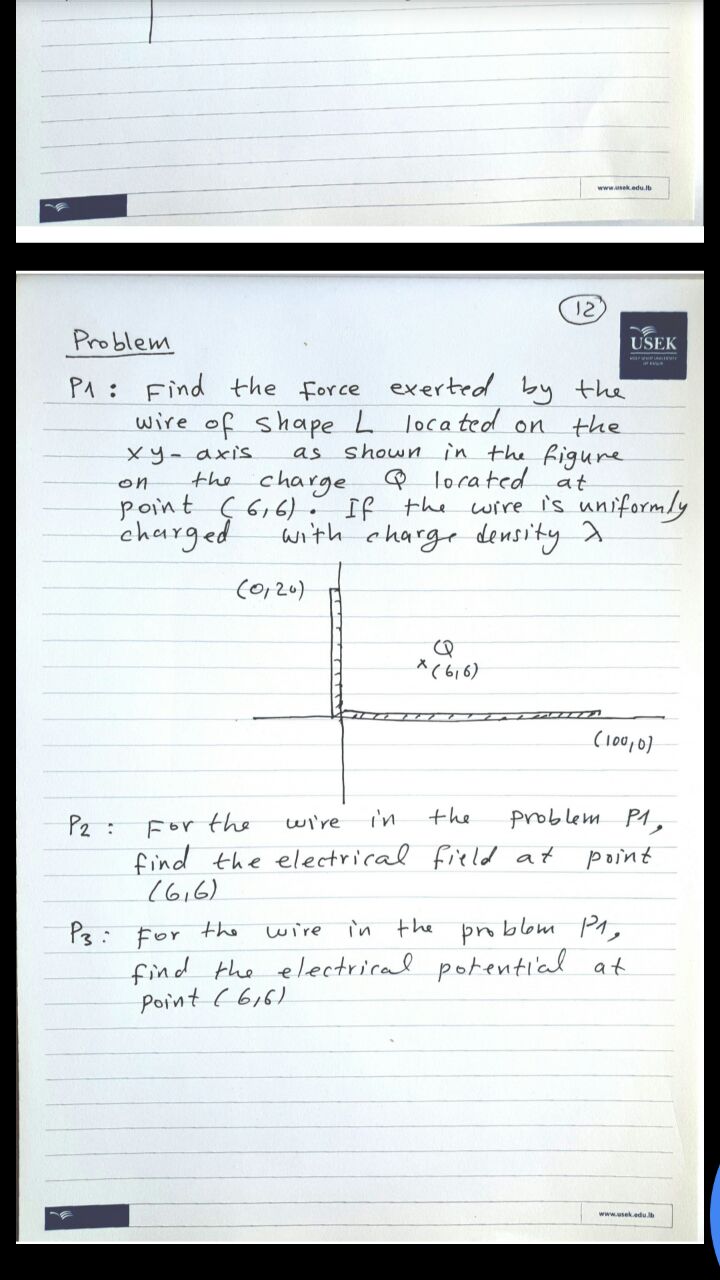 www.usek.edu.lb
12
Problem
USEK
P1 : Find the force exerted by the
wire of shape L located on the
xy-axis as shown in the figure
on the charge Q located at
point (6,6). If the wire is uniformly
charged with charge density λ
(0,20)
Q
x (6,6)
(100,0)
P2 : For the wire in the problem P1,
find the electrical field at point
(6,6)
P3 : For the wire in the problem P1,
find the electrical potential at
point (6,6)
www.usek.edu.lb